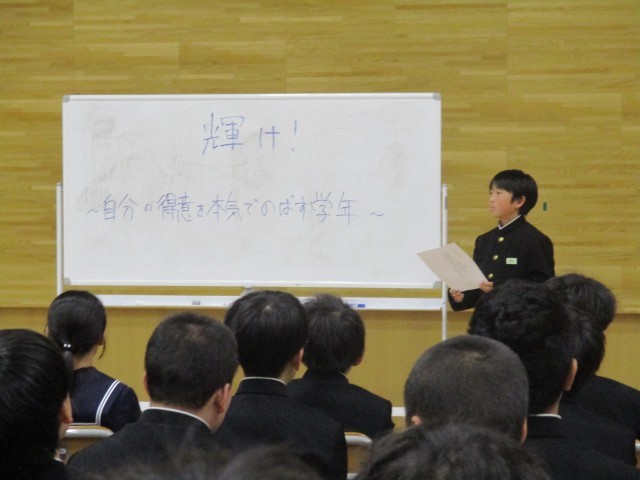 輝け!
~自分の得意を本気でのばす学年~